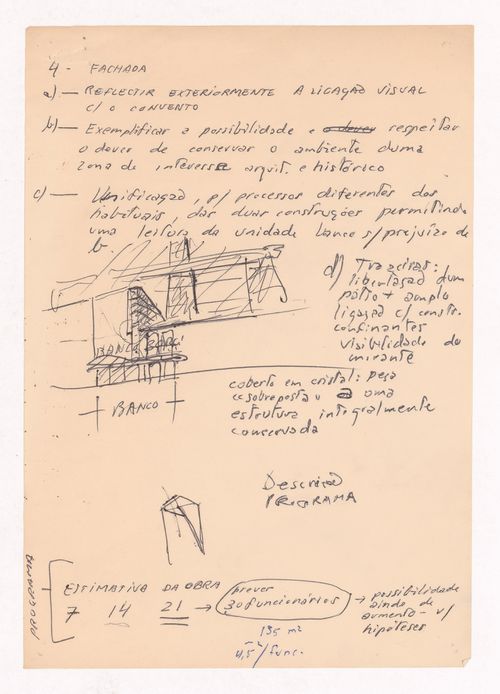 4 - FACHADA
a) — REFLECTIR EXTERIORMENTE A LIGAÇÃO VISUAL
c/ o CONVENTO
b) — Exemplificar a possibilidade e o dever respeitar
o dever de conservar o ambiente duma
zona de interesse arquit. e histórico
c) — Unificação, p/ processos diferentes dos
habituais, das duas construções permitindo
uma leitura da unidade banco s/ prejuízo de
b.
d) Trazeiras:
libertação dum
pátio + amplo
ligação c/ constr.
confinantes
visibilidade do
mirante
BANCO
coberto em cristal: peça
"sobreposta" a uma
estrutura integralmente
conservada
BANCO
Descrição
PROGRAMA
PROGRAMA
ESTIMATIVA DA OBRA
7 14 21 →
prever
30 funcionários
→ possibilidade
ainda de
aumento - v/
hipóteses
135 m²
4,5²/func.